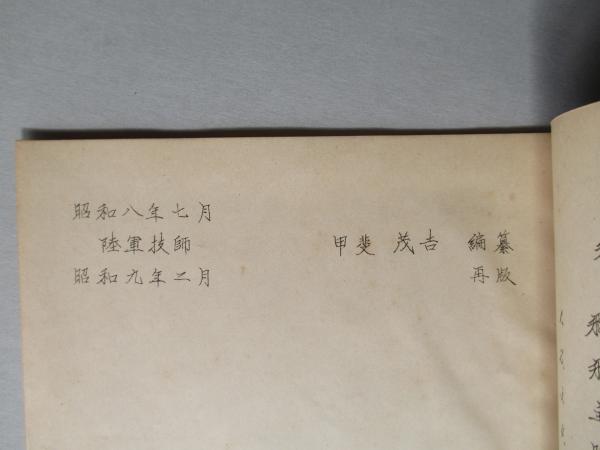 昭和八年七月
陸軍技師 甲斐 茂吉 編纂
昭和九年二月 再版